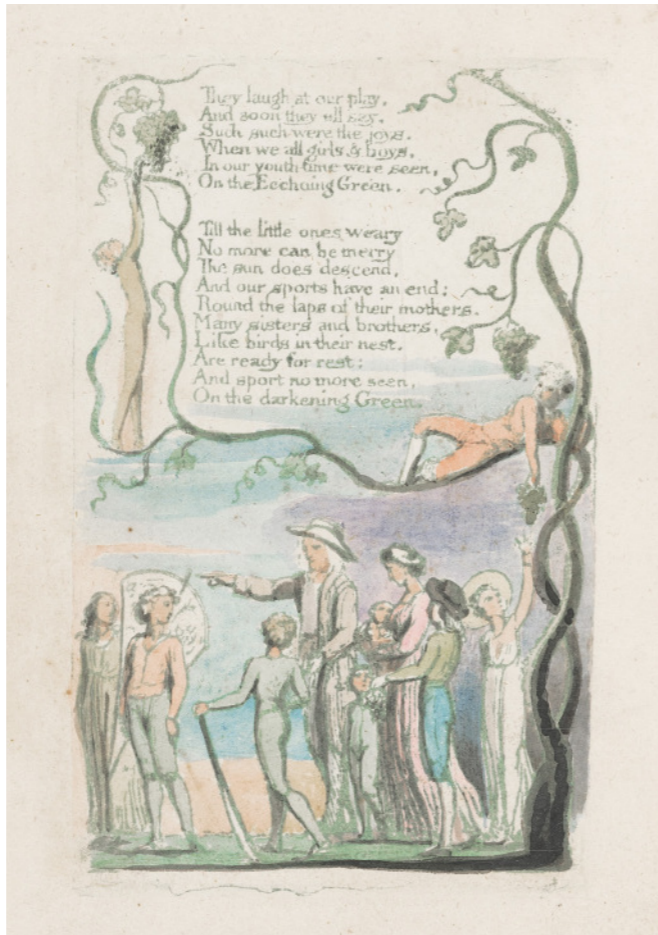 They laugh at our play,
And soon they all say,
Such such were the joys.
When we all girls & boys,
In our youth-time were seen,
On the Ecchoing Green.
Till the little ones weary
No more can be merry
The sun does descend,
And our sports have an end:
Round the laps of their mothers,
Many sisters and brothers,
Like birds in their nest,
Are ready for rest;
And sport no more seen,
On the darkening Green.